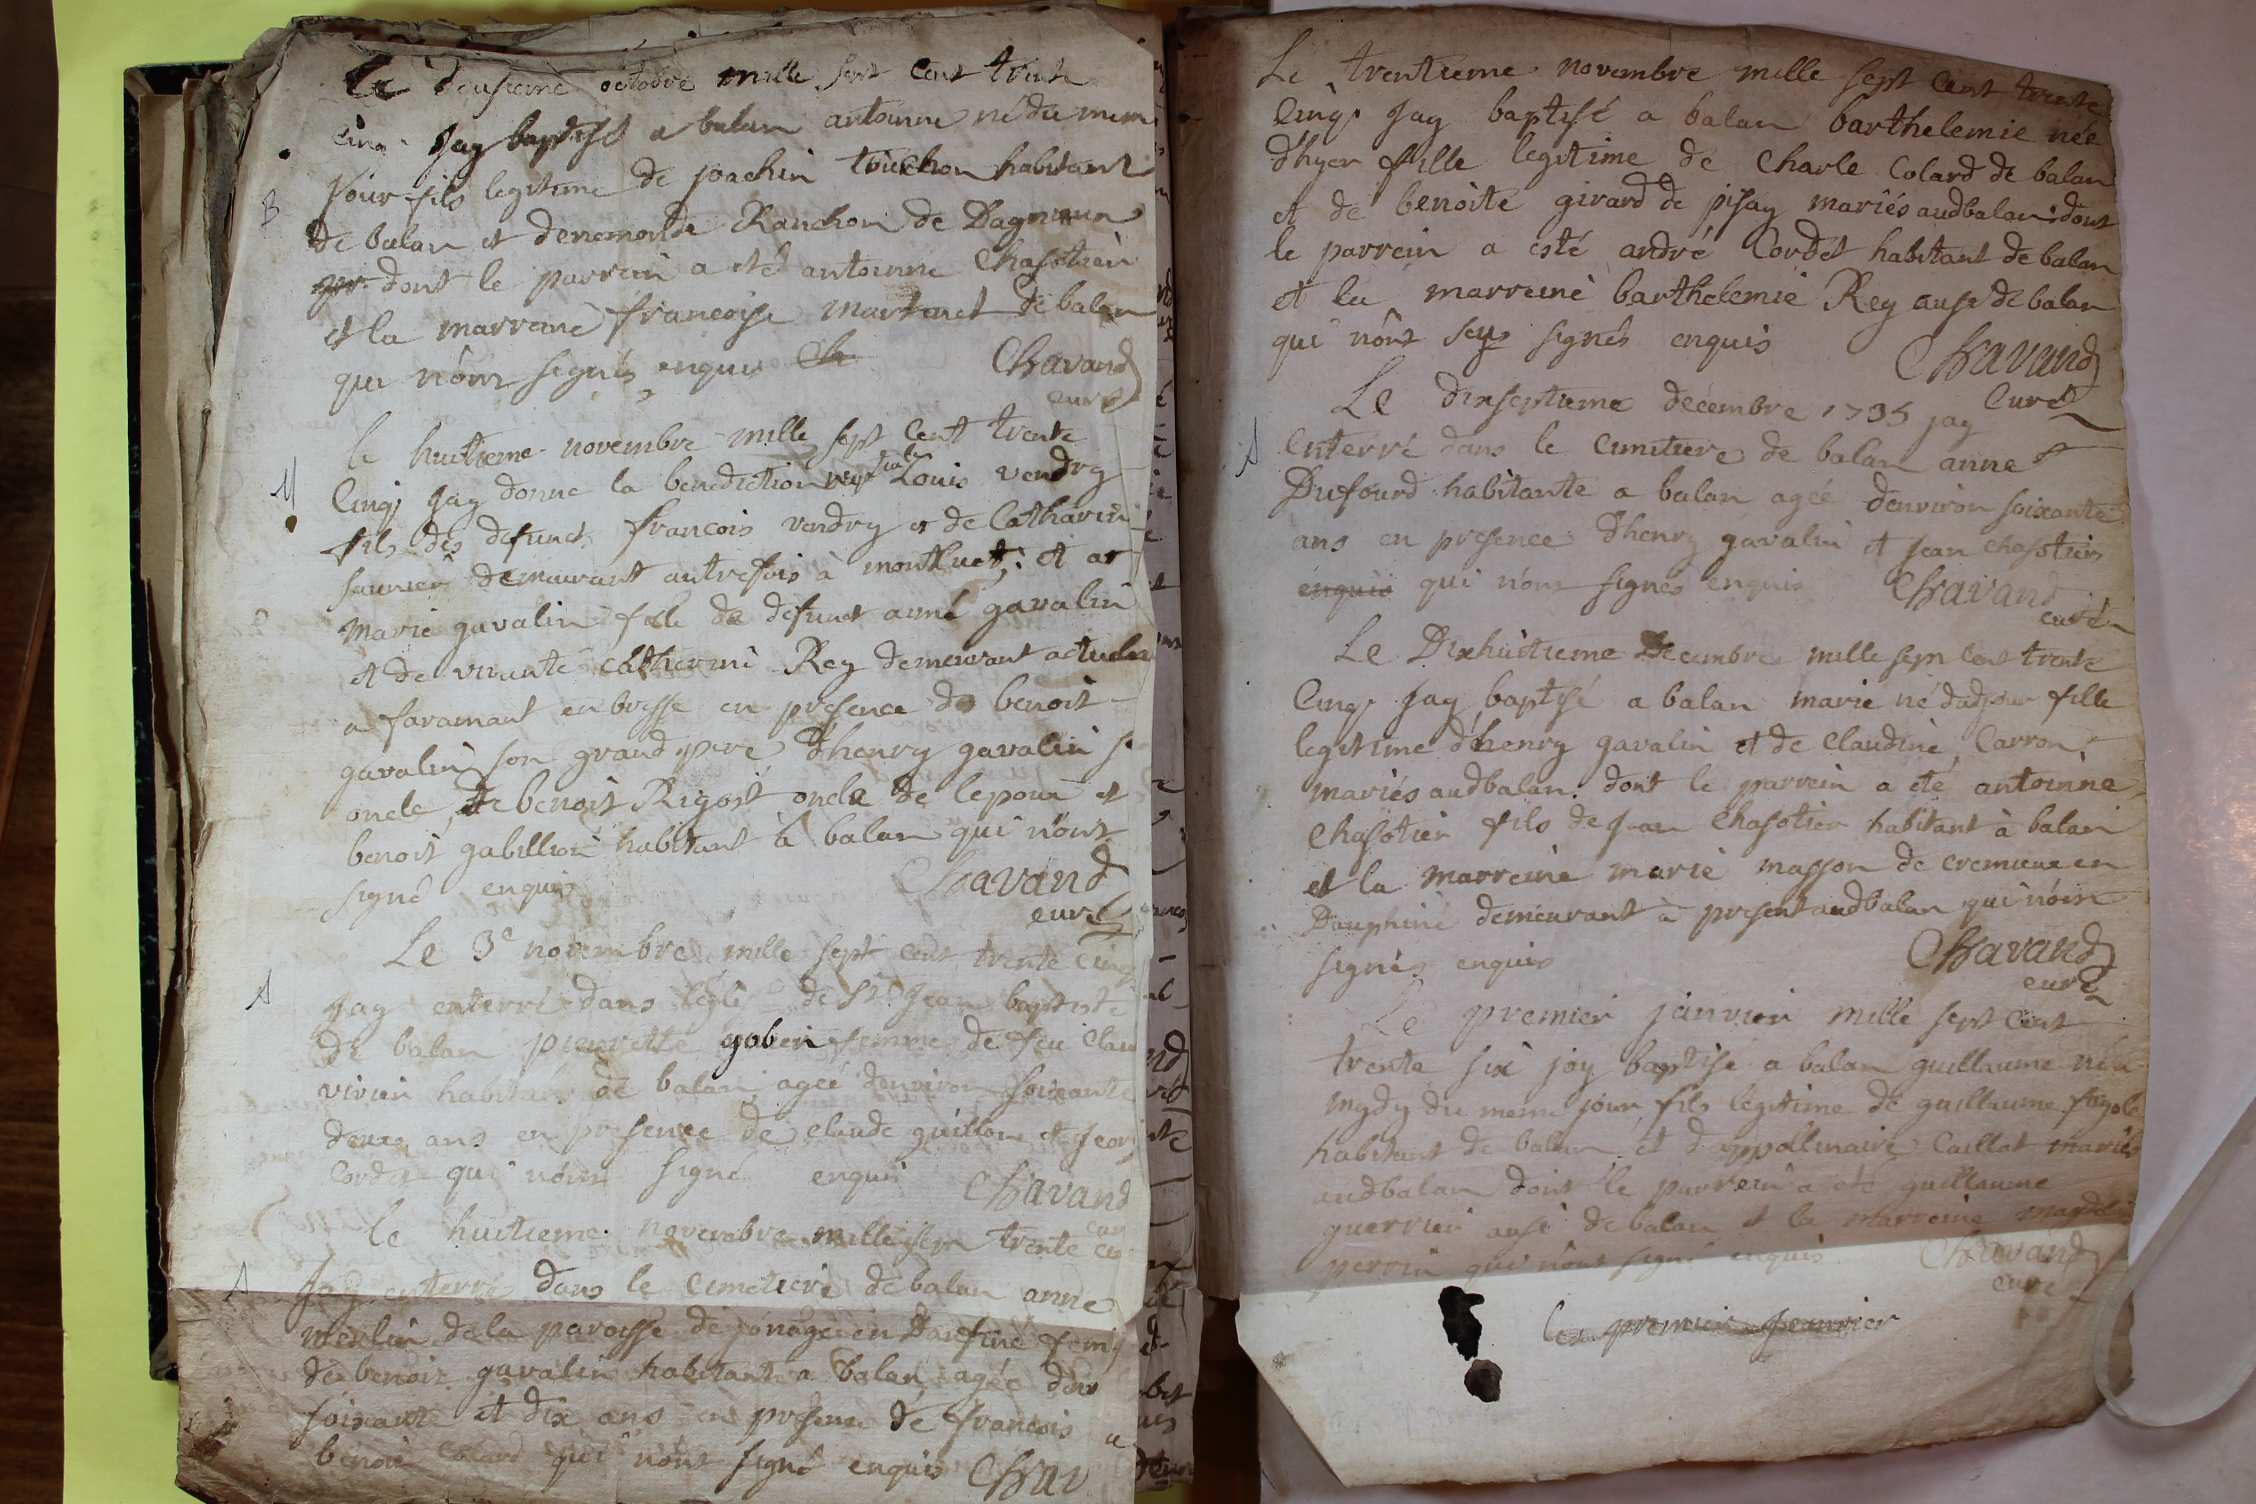 Le deusieme octobre mille sept cent trente
cinq jay baptisé a balan antoinne né du meme
B
jour fils legitime de joachin touchon habitant
de balan et denemonde Ranchon de Dagnieux
dont le parrein a eté antoinne Chasotier
et la marreine francoise martenet de balan
qui nônt signés enquis Ch Chavand
curé
le huitieme novembre mille sept cent trente
M
Cinq jay donne la benediction nuptiale Louis vendry
fils des defunct francois vendry et de Catharin
saunier demeurant autrefois à montluet, et at
marie gavalin fille de defunct aimé gavalin
et de vivante catherine Rey demeurant actuelm
a faramant en bresse en presence de benoit
gavalin son grand pere d'henry gavalin s
oncle, de benoit Rigost oncle de lepoux et
benoit gabillion habitant à balan qui nônt
signé enquis Chavand
curé
Le 3e novembre mille sept cent trente cinq
A
jay enterré dans leglise de St Jean baptiste
de balan pierrette goben femme de feu Clau
vivien habitant de balan agée d'environ soixante
deux ans en presence de claude guillon et Jean
Cordet qui nônt signé enquis Chavand
cur
le huitieme novembre mille sept trente cin
A
Jay enterré dans le cimetiere de balan anne
merlin de la paroisse de jonage en Daufiné fem
de benoit gavalin habitant a balan agée d'en
soixante et dix ans en presence de francois
benoit colard qui nônt signé enquis Chav
Le trentieme novembre mille sept cent trente
Cinq. Jay baptisé a balan barthelemie née
d'hyer fille legitime de Charle Colard de balan
et de benoite girard de pisay mariés audbalan: dont
le parrein a esté andré Cordet habitant de balan
et la marreine barthelemie Rey ausi de balan
qui nônt seus signés enquis Chavand
curé
Le dixseptieme décembre 1735 jay
A
enterré dans le cimetiere de balan anne
Dufourd habitante a balan agée d'environ soixante
ans en presence d'henry gavalin et jean chasotier
enquis qui nônt signés enquis Chavand
curé
Le Dixhuitieme Decembre mille sept cent trente
Cinq. Jay baptisé a balan marie né dudjour fille
legitime d'henry gavalin et de claudine Carron
mariés audbalan. dont le parrein a eté antoinne
Chasotier fils de Jean Chasotier habitant à balan
et la marreine marie masson de cremieux en
Dauphiné demeurant à present audbalan qui nônt
signés enquis Chavand
curé
Le premier janvier mille sept cent
trente six jay baptisé a balan guillaume né a
mydy du meme jour, fils legitime de guillaume
habitant de balan et d'appollinaire Caillat mariés
audbalan dont le parrein a eté guillaume
guerrier ausi de balan et la marreine magdel
perrin qui nônt signé enquis Chavand
curé
le premier jeanvier